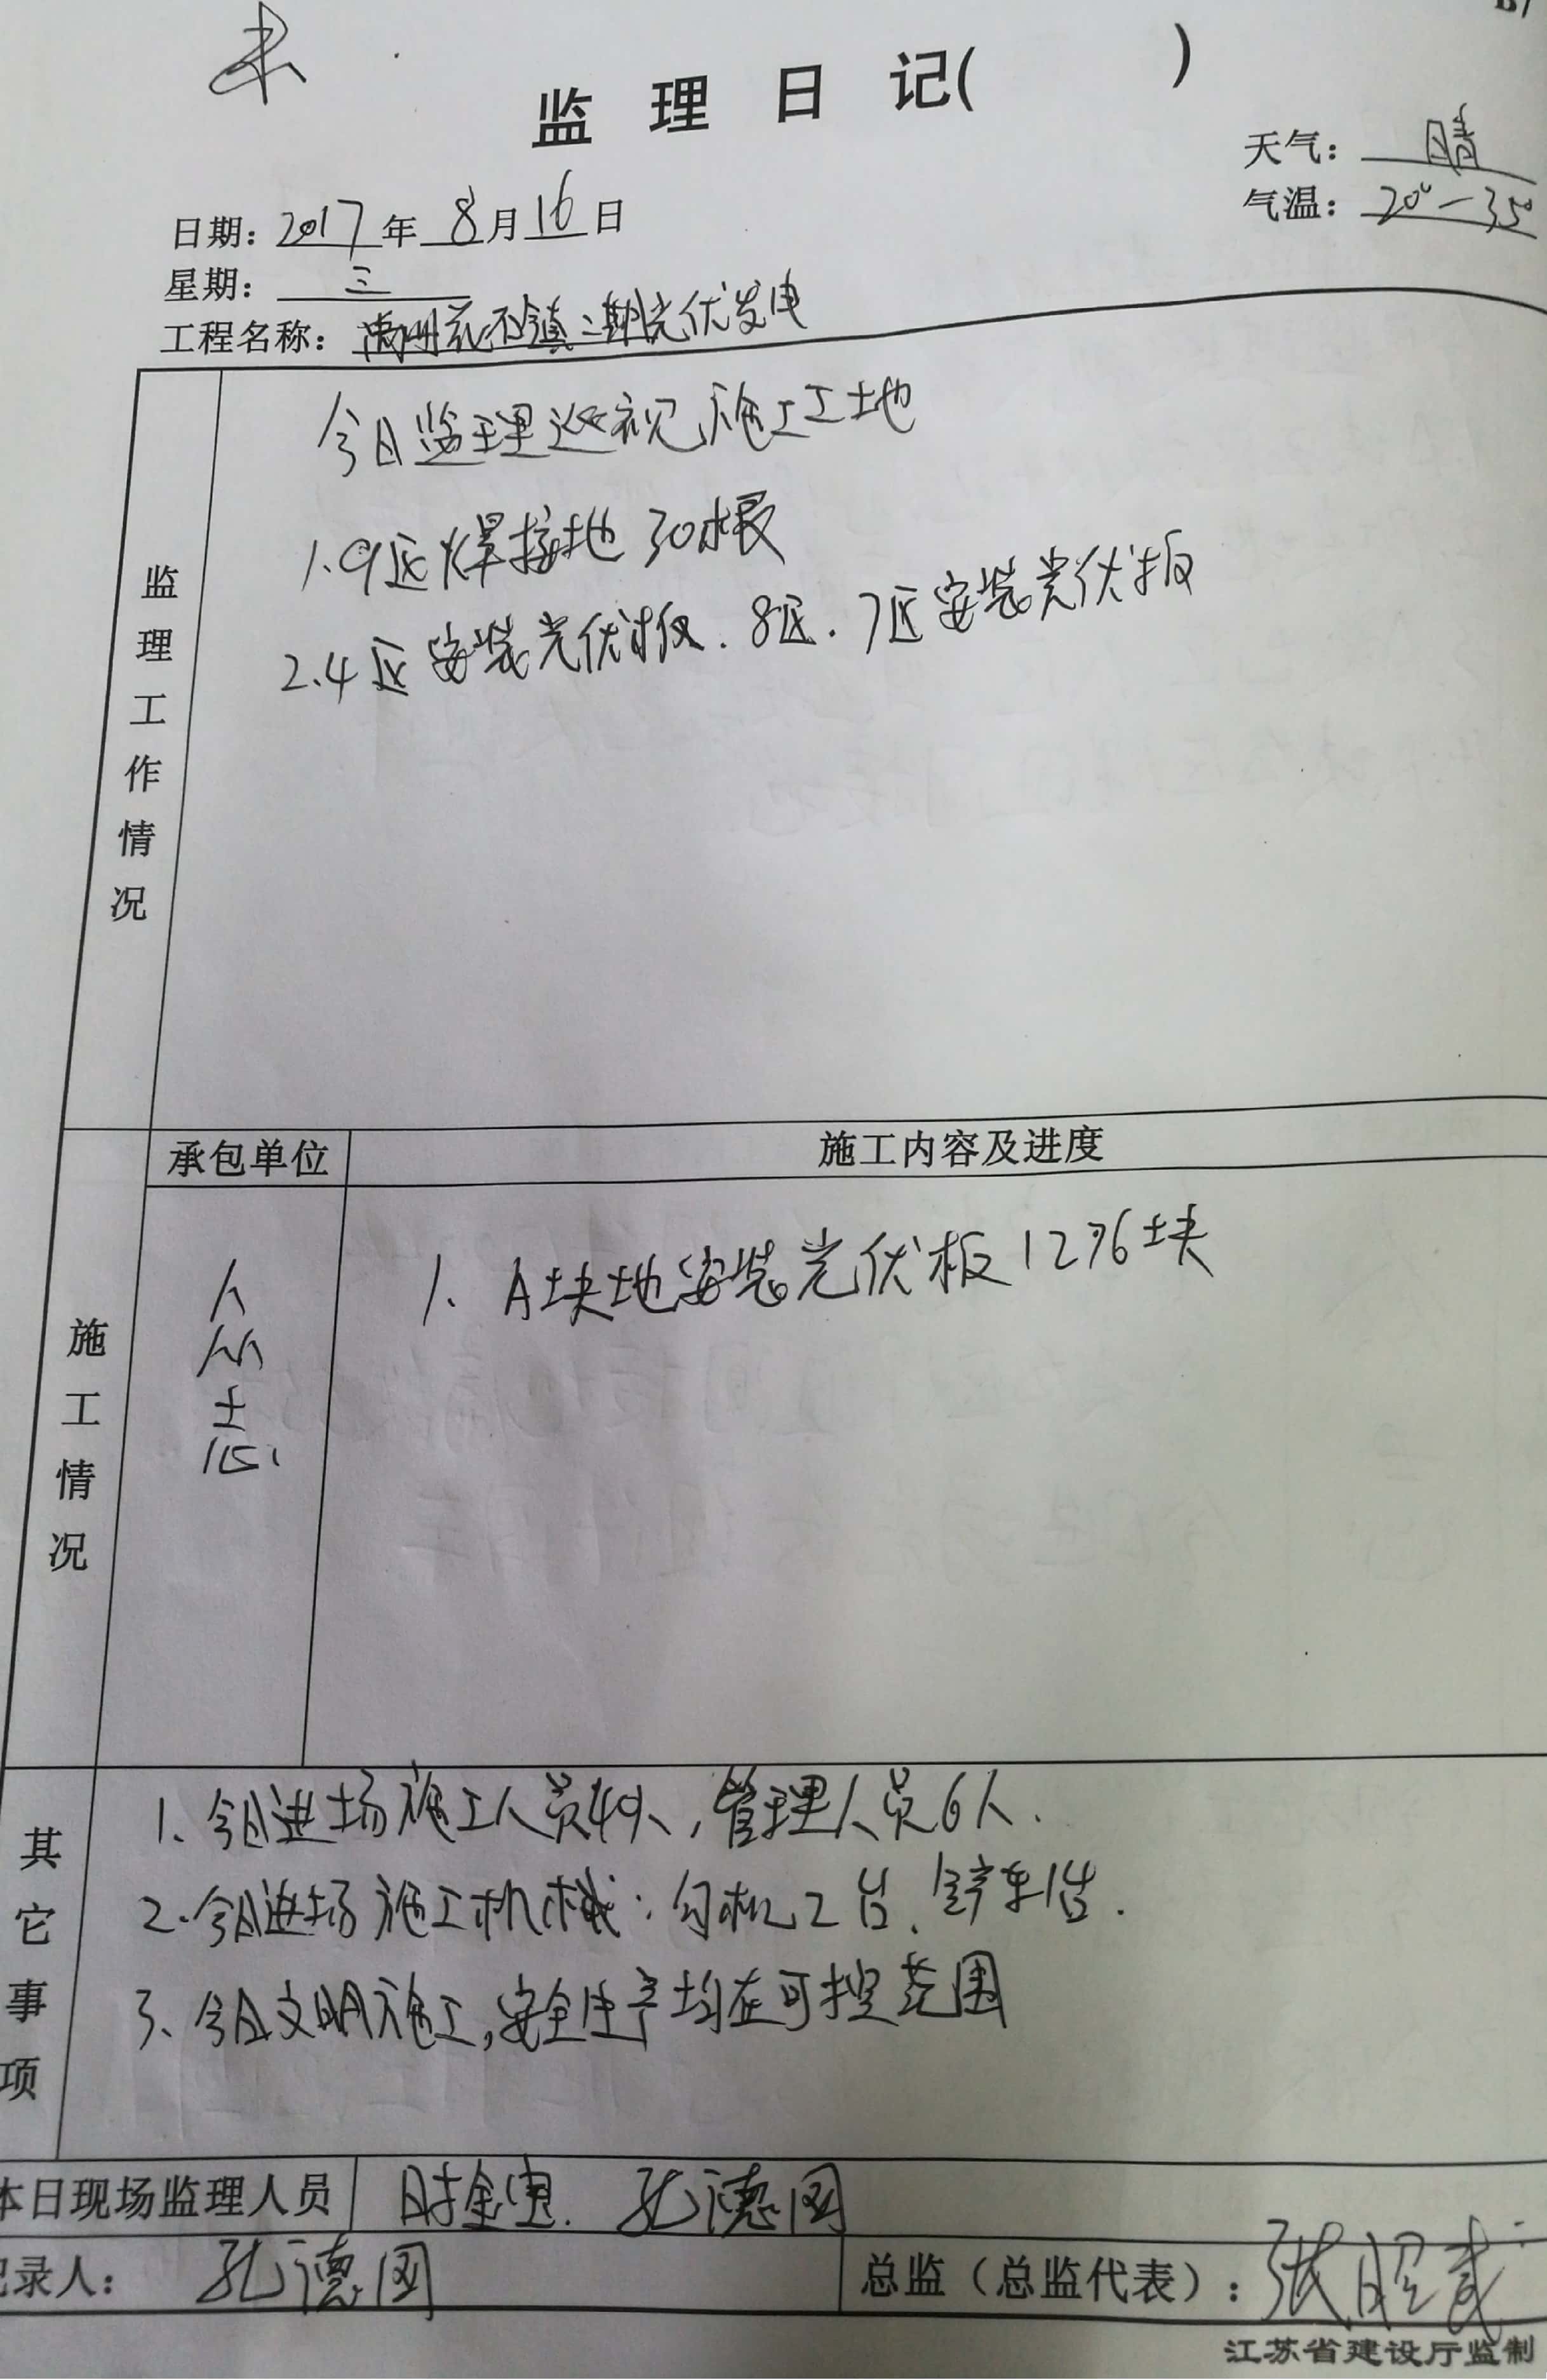 监理日记( )
天气：晴
气温：20°-35°
日期：2017年8月16日
星期：三
工程名称：禹州花石镇二期光伏发电
监理工作情况
今日监理巡视施工工地
1.9区焊接地30根
2.4区安装光伏板.8区.7区安装光伏板
承包单位
施工内容及进度
施工情况
1、A块地安装光伏板1296块
其它事项
1、今日进场施工人员40人,管理人员6人.
2.今日进场施工机械:勾机2台、铲车1台.
3、今日文明施工,安全生产均在可控范围
本日现场监理人员
孔德国
记录人：孔德国
总监（总监代表）：张昭武
江苏省建设厅监制